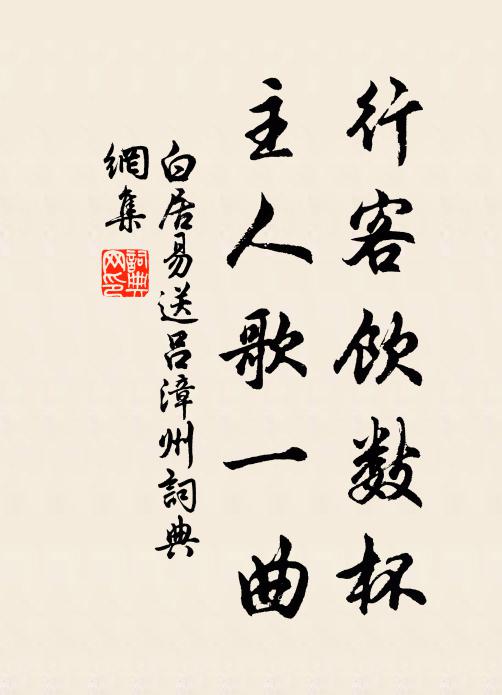 行客饮数杯
主人歌一曲
白居易送吕漳州詞典
網集
詞典
网印